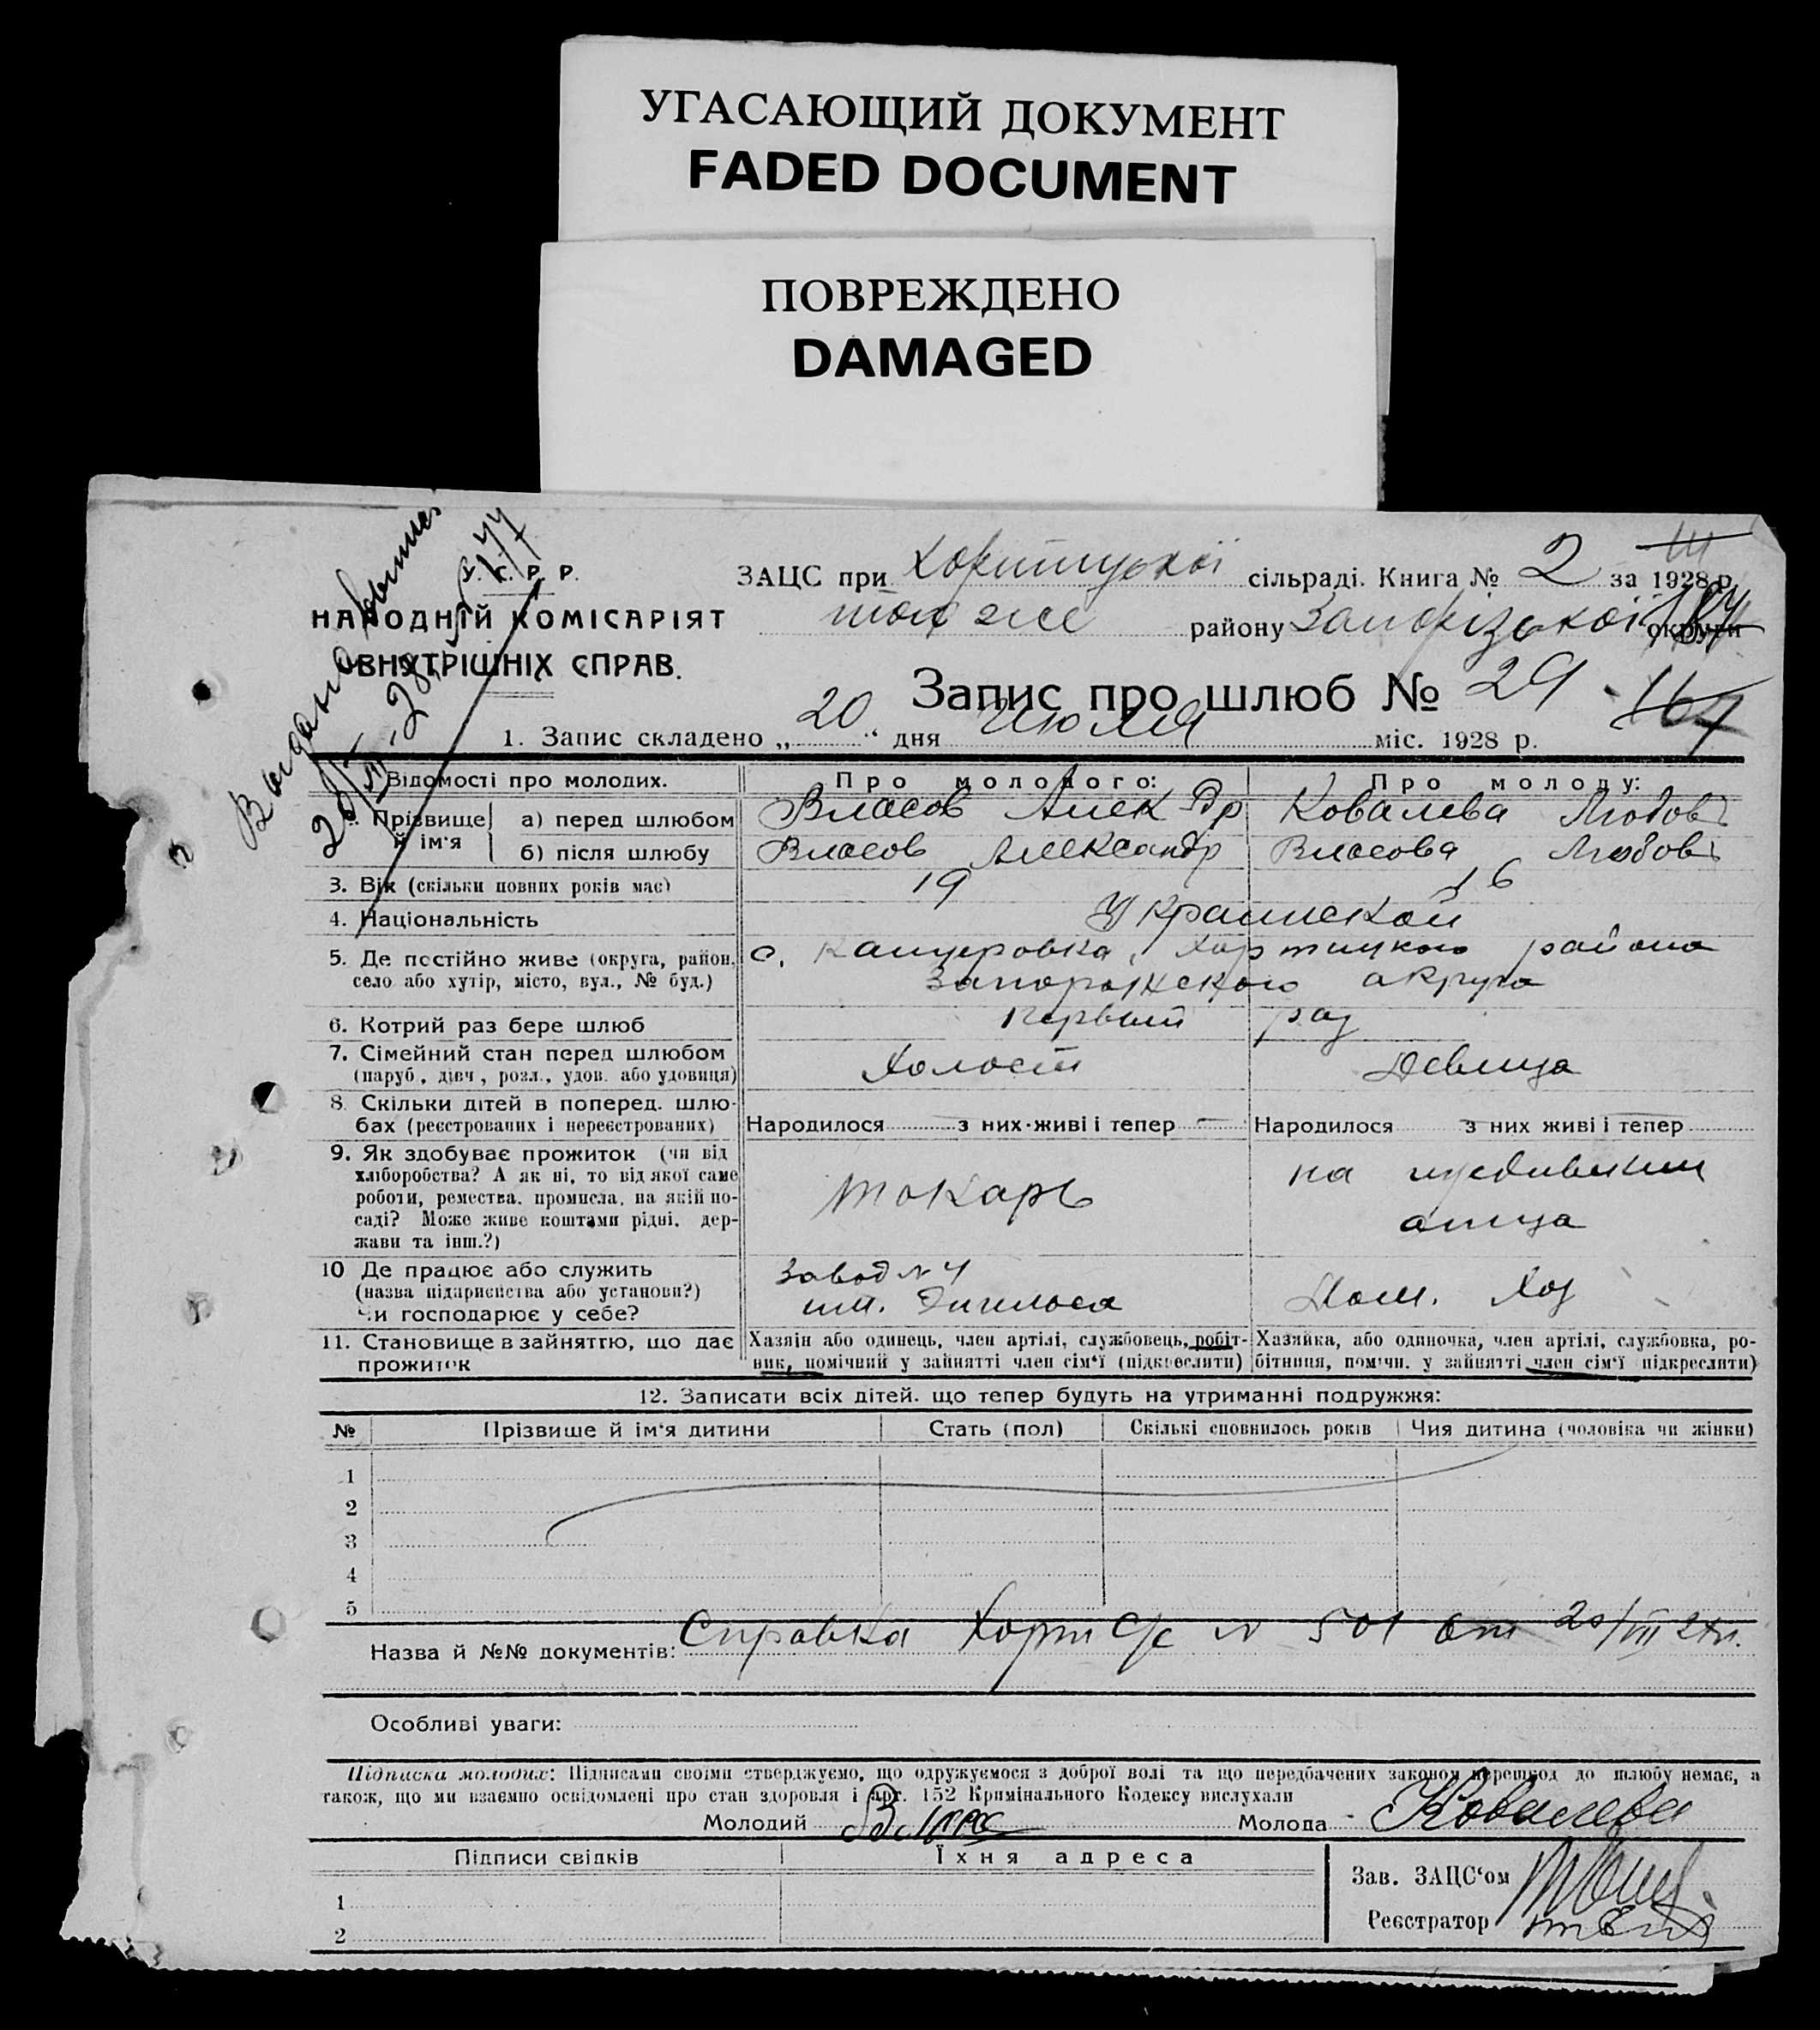 УГАСАЮЩИЙ ДОКУМЕНТ
FADED DOCUMENT
ПОВРЕЖДЕНО
DAMAGED
У. С. Р. Р.
НАРОДНІЙ КОМІСАРІЯТ
ВНУТРІШНІХ СПРАВ.
ЗАЦС при Хортицької сільраді. Книга № 2 за 1928 р.
того же району Запорізької округи
Запис про шлюб № 29
164
1. Запис складено „20“ дня Июля міс. 1928 р.
Відомості про молодих. Про молодого: Про молоду:
Прізвище й ім'я а) перед шлюбом Власов Алек др Ковалева Любовь
б) після шлюбу Власов Александр Власова Любовь
3. Вік (скільки повних років має) 19 16
4. Національність Украинской
5. Де постійно живе (округа, район, с. Канцеровка, Хортицкого района
село або хутір, місто, вул., № буд.) Запорожского округа
6. Котрий раз бере шлюб первый раз
7. Сімейний стан перед шлюбом Холост Девица
(паруб., дівч., розл., удов. або удовиця)
8. Скільки дітей в поперед. шлю-
бах (реєстрованих і нереєстрованих) Народилося — з них живі і тепер — Народилося з них живі і тепер
9. Як здобуває прожиток (чи від
хліборобства? А як ні, то від якої саме
роботи, ремества, промисла, на якій по-
саді? Може живе коштами рідні, дер-
жави та інш.?)
Токарь
на иждивении
отца
10 Де працює або служить
(назва підприємства або установи?)
Чи господарює у себе?
Завод № 4
им. Энгельса
Дом. Хоз
11. Становище в зайняттю, що дає
прожиток
Хазяїн або одинець, член артілі, службовець, робіт-
ник, помічний у зайнятті член сім'ї (підкреслити)
Хазяйка, або одиночка, член артілі, службовка, ро-
бітниця, помічн. у зайнятті член сім'ї підкреслити)
12. Записати всіх дітей, що тепер будуть на утриманні подружжя:
№ Прізвище й ім'я дитини Стать (пол) Скількі сповнилось років Чия дитина (чоловіка чи жінки)
1
2
3
4
5
Назва й №№ документів: Справка Хорт С/с № 501 от 20/VII 28 г.
Особливі уваги:
Підписка молодих: Підписами своїми стверджуємо, що одружуємося з доброї волі та що передбачених законом перешкод до шлюбу немає, а
також, що ми взаємно освідомлені про стан здоровля і арт. 152 Кримінального Кодексу вислухали
Молодий Молода Ковалева
Підписи свідків Їхня адреса
1
2
Зав. ЗАЦС'ом
Реєстратор